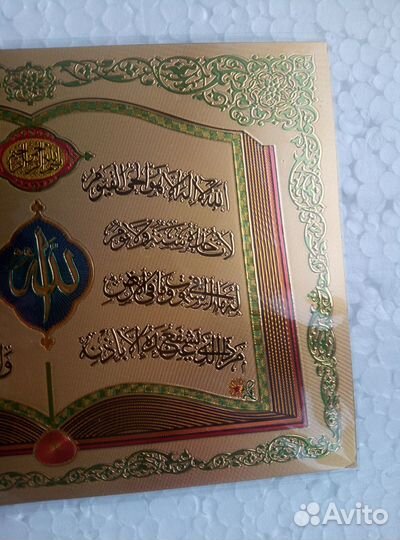 الله لا إله إلا هو الحي القيوم
لا تأخذه سنة ولا نوم
له ما في السموات وما في الأرض
من ذا الذي يشفع عنده إلا بإذنه
الله
Avito